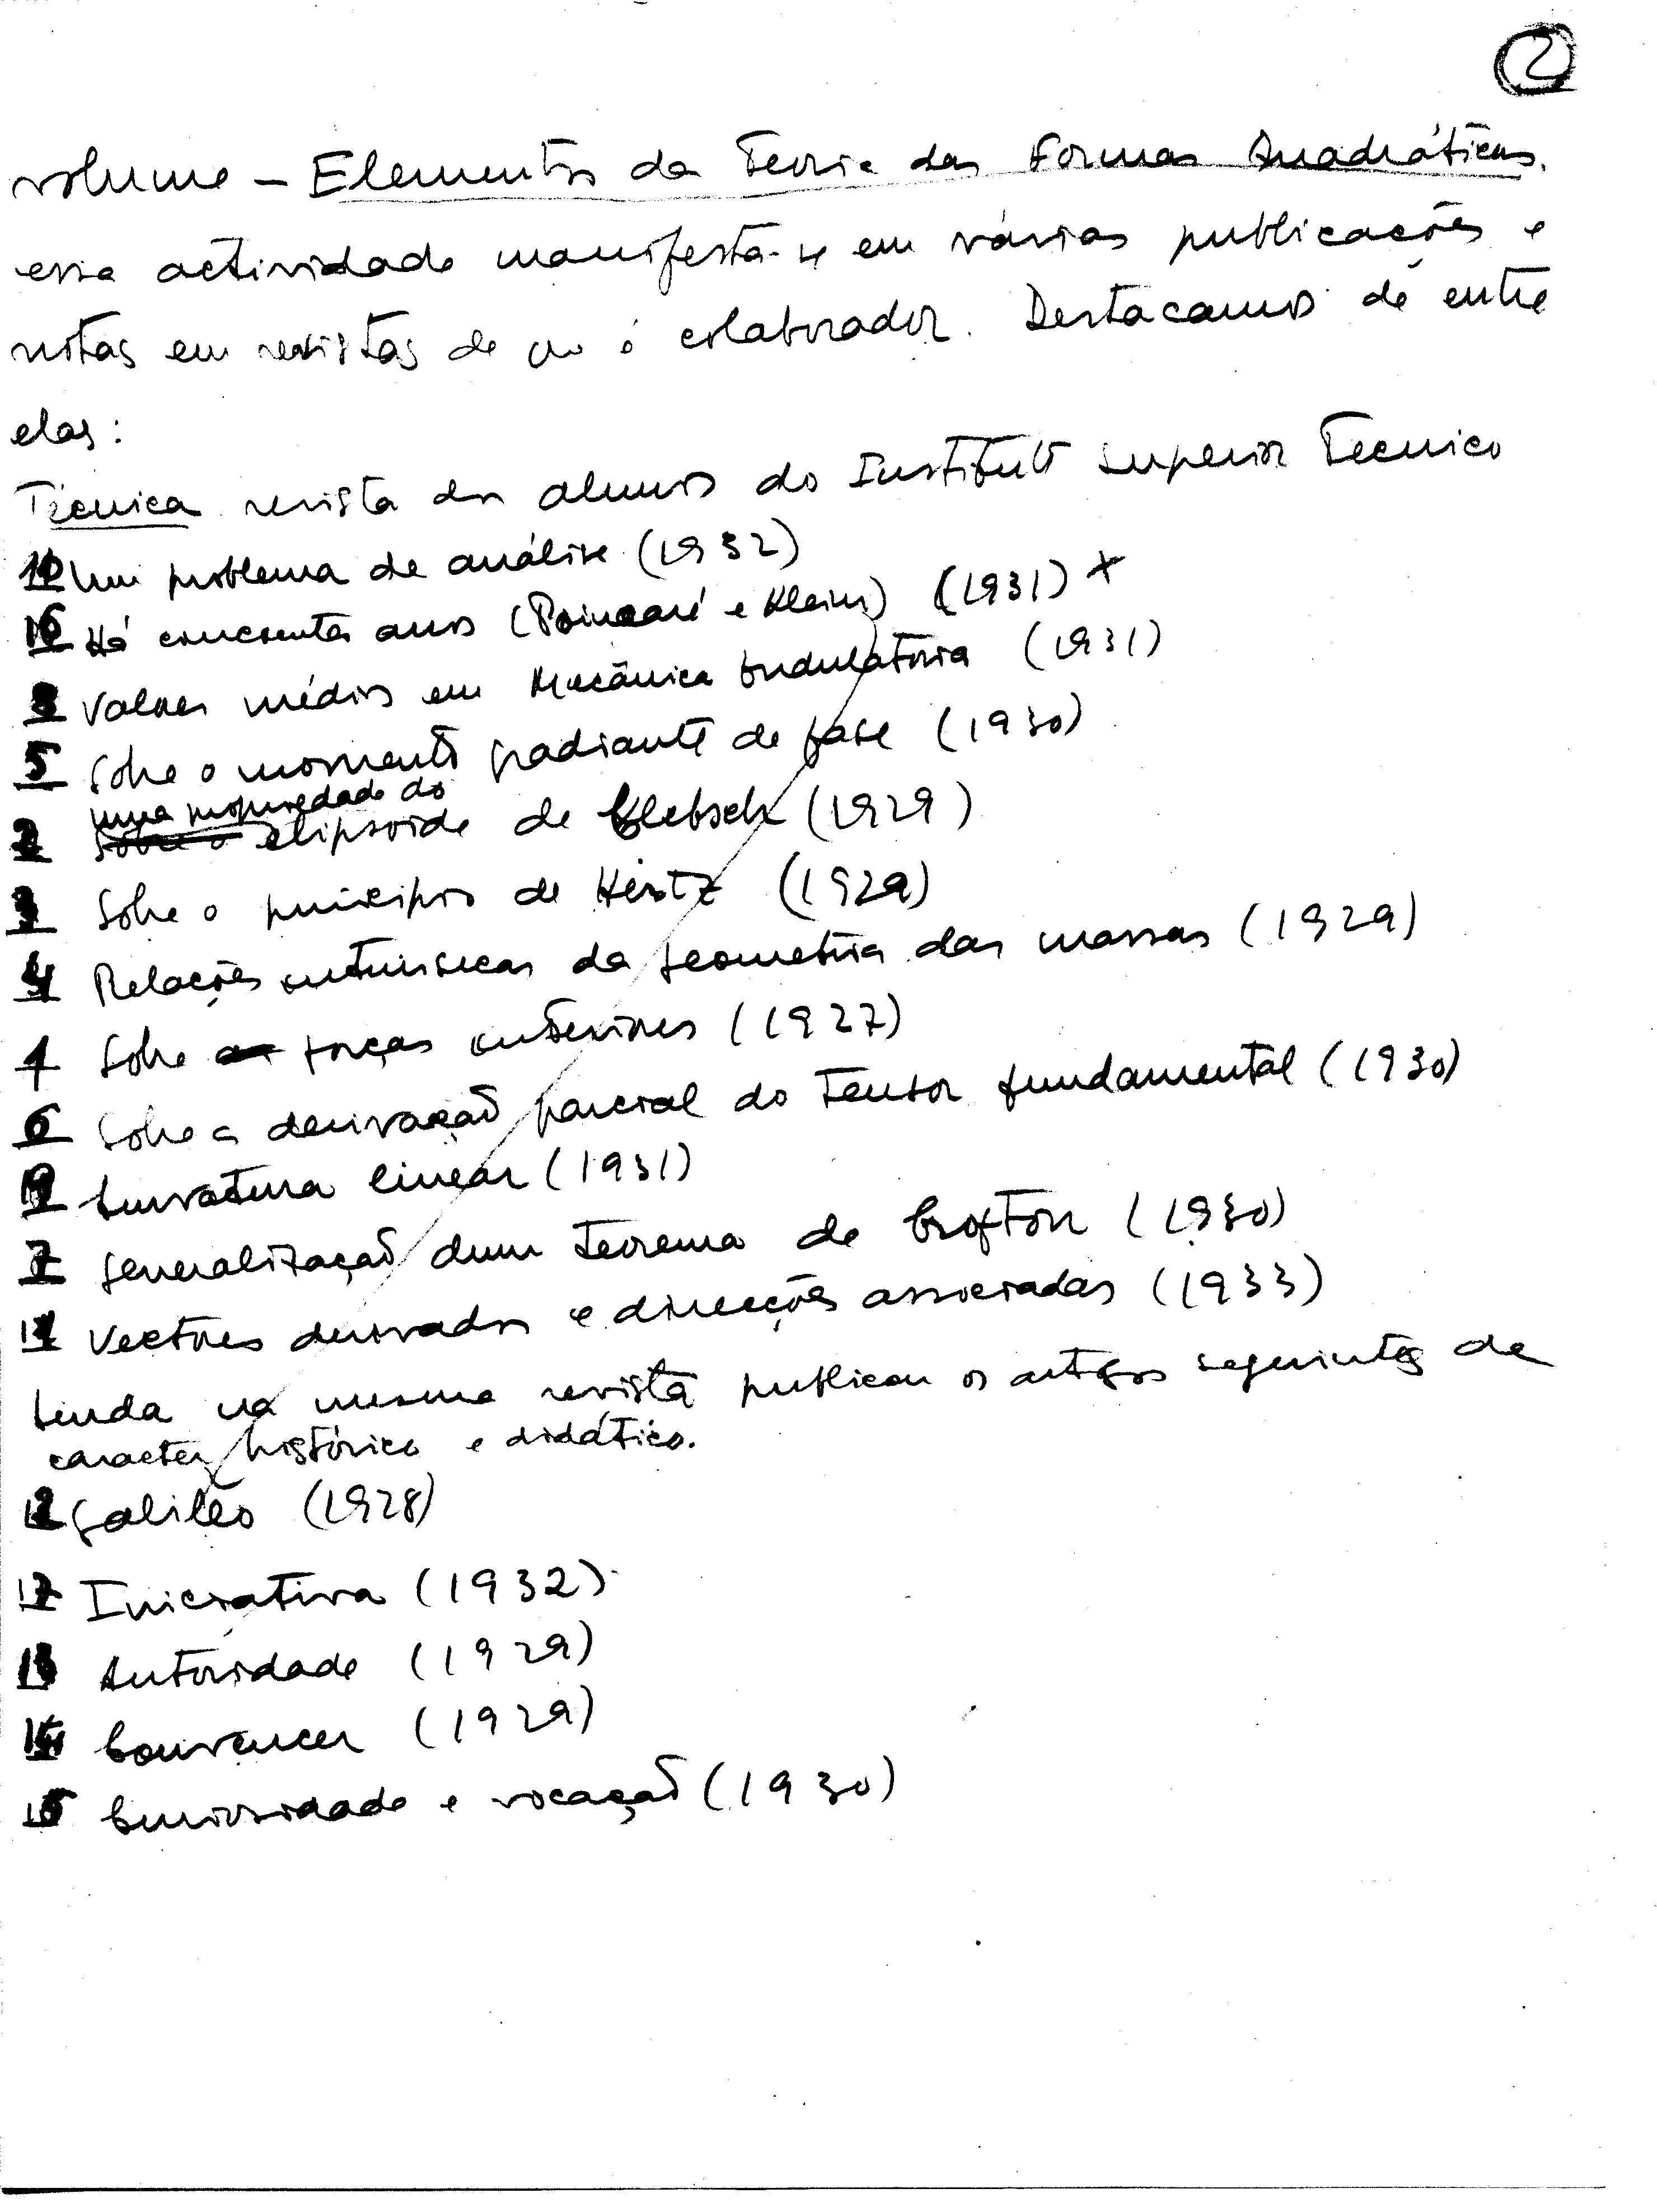 2
volume - Elementos da Teoria das Formas Quadráticas.
essa actividade manifesta-se em várias publicações e
notas em revistas de que é colaborador. Destacamos de entre
elas:
Técnica revista dos alunos do Instituto Superior Tecnico
10 Um problema de análise (1932)
16 Há cincoenta anos (Poincaré e Klein) (1931) x
8 Valores médios em Mecânica Ondulatória (1931)
5 Sobre o momento gradiante de fase (1930)
uma propriedade do
2 Sobre o elipsoide de Clebsch (1929)
3 Sobre o principio de Hertz (1929)
4 Relações intrinsecas da geometria das massas (1929)
1 Sobre as forças interiores (1927)
6 Sobre a derivação parcial do Tensor fundamental (1930)
9 Curvatura linear (1931)
7 Generalização dum Teorema de Crofton (1930)
11 Vectores derivados e direcções associadas (1933)
Ainda na mesma revista publicou os artigos seguintes de
caracter histórico e didático.
12 Galileo (1928)
17 Iniciativa (1932)
13 Autoridade (1929)
14 Convencer (1929)
15 Curiosidade e vocação (1930)